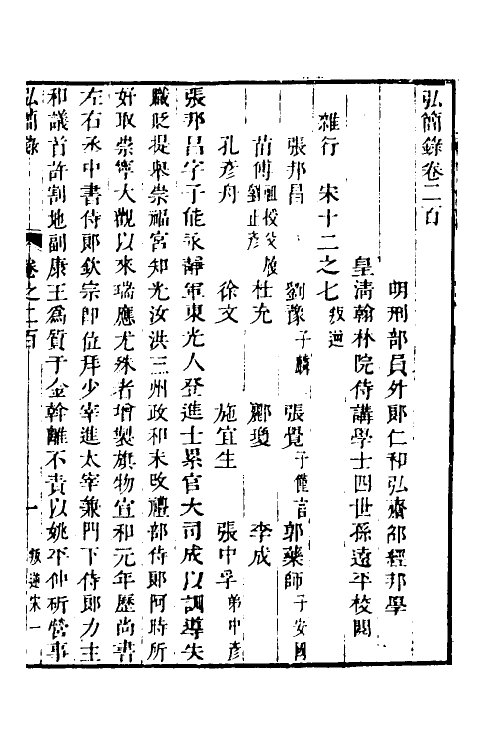 弘簡錄卷二百
明刑部員外郎仁和弘齋邵經邦學
皇清翰林院侍講學士四世孫遠平校閱
雜行 宋十二之七 叛逆
張邦昌 劉豫 子麟 張覺 子僅言 郭藥師 子安國
苗傅 劉正彥 杜充 酈瓊 李成
孔彥舟 徐文 施宜生 張中孚 弟中彥
張邦昌字子能永靜軍東光人登進士累官大司成以訓導失
職貶提舉崇福宮知光汝洪三州政和末改禮部侍郎阿時所
好取崇寧大觀以來瑞應尤殊者增製旗物宣和元年歷尚書
左右丞中書侍郎欽宗即位拜少宰進太宰兼門下侍郎力主
和議首許割地副康王為質于金幹離不責以姚平仲斫營事
弘簡錄 卷之二百 一 叛逆宋一